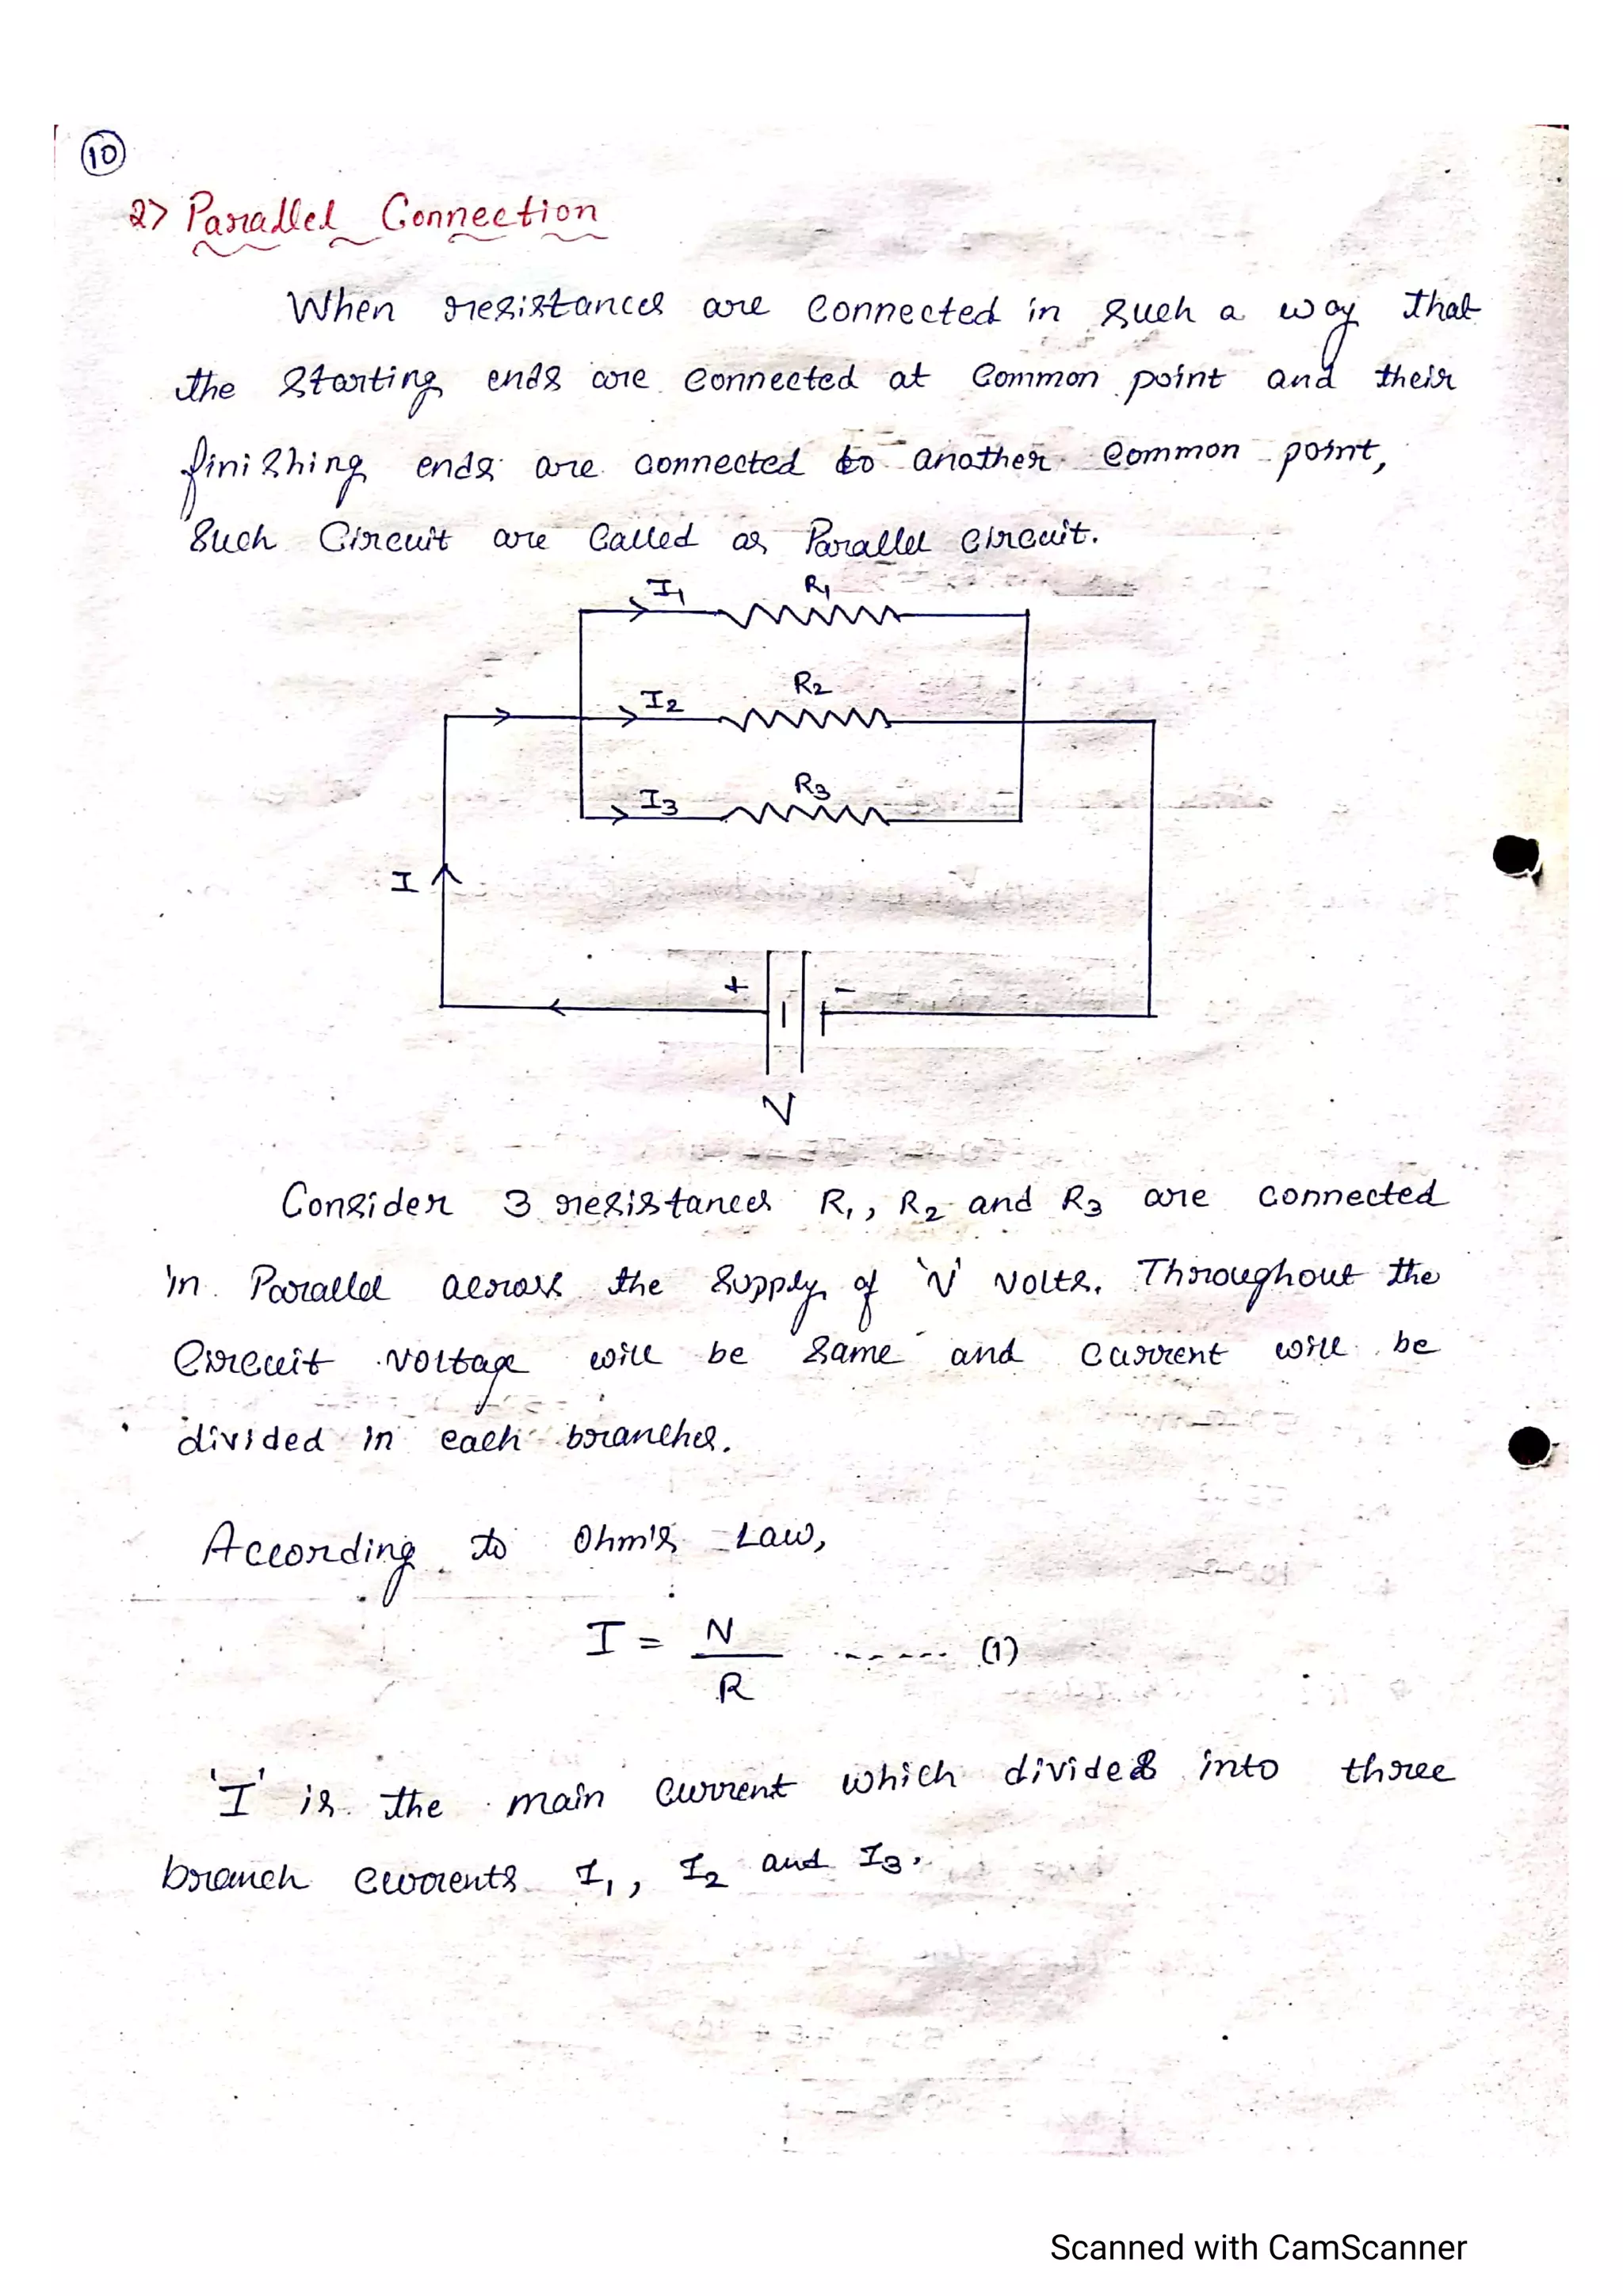 10
2> Parallel Connection
When resistances are connected in such a way that
the starting ends are connected at common point and their
finishing ends are connected to another common point,
Such Circuit are Called as Parallel circuit.
I1 R1
R2
I2
R3
I3
I
+ -
V
Consider 3 resistances R1, R2 and R3 are connected
in Parallel across the supply of 'V' volts. Throughout the
Circuit voltage will be same and current will be
divided in each branches.
According to Ohm's Law,
I = V
------ (1)
R
'I' is the main current which divides into three
branch currents I1, I2 and I3.
Scanned with CamScanner